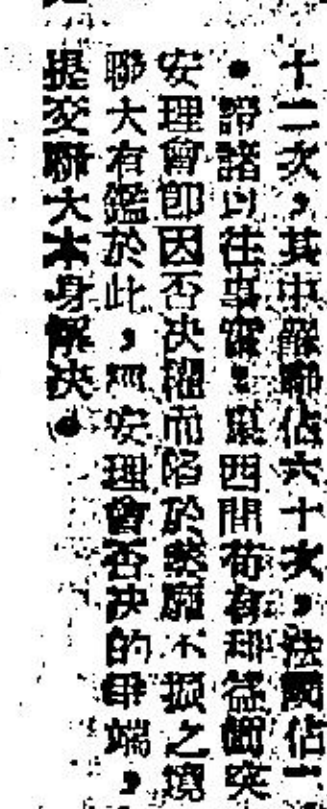 十二次，其中蘇聯佔六十次，法國佔二
。證諸以往事實，東西間苟有利益衝突
安理會即因否決權而陷於 之境
聯大有鑑於此，安理會否決的事端，
提交聯大本身解決。